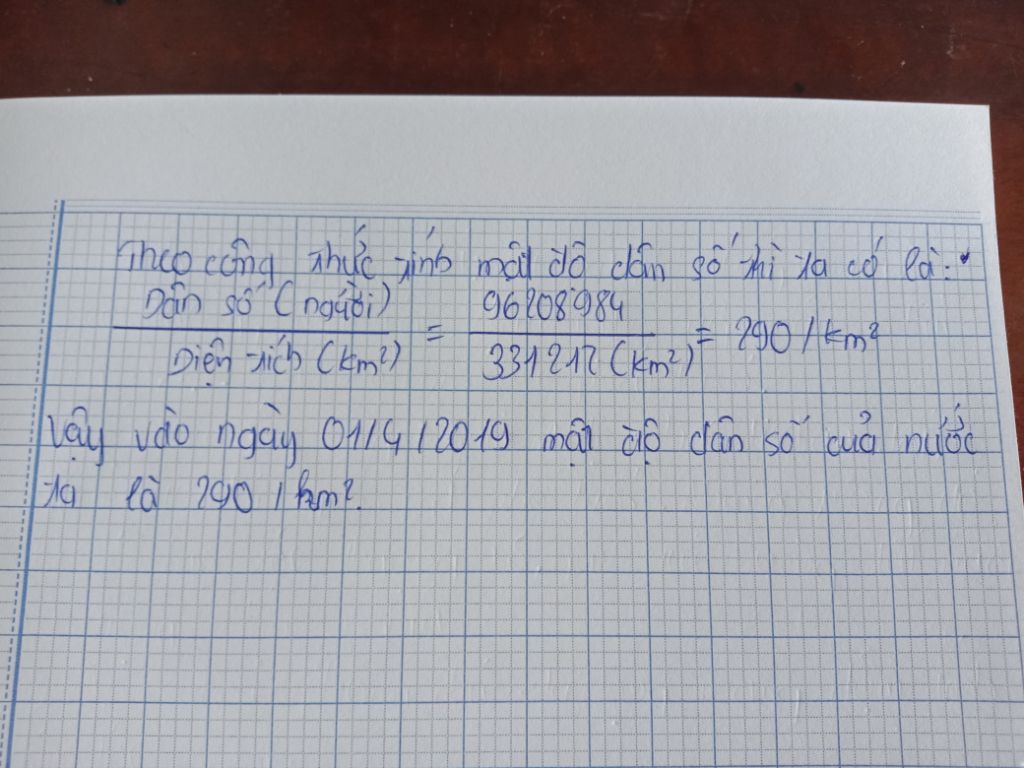 Theo công thức tính mật độ dân số thì ta có là:
Dân số (người) / Diện tích (km²) = 96208984 / 331212 (km²) = 290 / km²
Vậy vào ngày 01/4/2019 mật độ dân số của nước
ta là 290 / km².